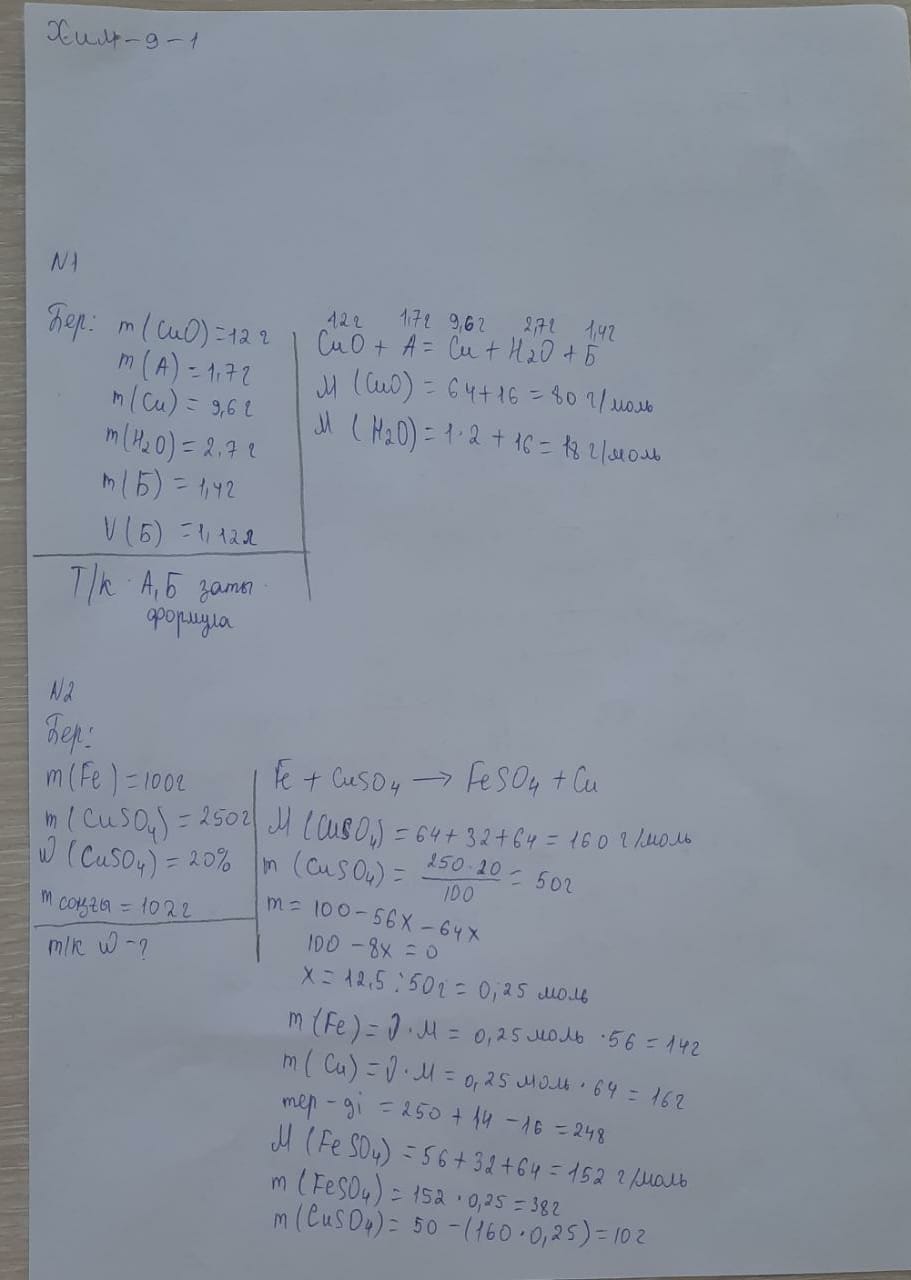 Хим-9-1
N1
Бер: m(CuO)=12г
m(A)=1,7г
m(Cu)=9,6г
m(H2O)=2,7г
m(Б)=1,4г
V(Б)=1,12л
Т/к А,Б заты
формула
12г 1,7г 9,6г 2,7г 1,4г
CuO + A = Cu + H2O + Б
M (CuO) = 64+16 = 80 г/моль
M (H2O) = 1·2 + 16 = 18 г/моль
N2
Бер:
m(Fe)=100г
m(CuSO4)=250г
ω(CuSO4)=20%
m соңғы = 102г
т/к ω-?
Fe + CuSO4 → FeSO4 + Cu
M(CuSO4) = 64+32+64 = 160 г/моль
m (CuSO4) = 250·20/100 = 50г
m = 100-56x-64x
100-8x=0
x=12,5:50г=0,25 моль
m(Fe)=ν·M=0,25моль·56=14г
m(Cu)=ν·M=0,25моль·64=16г
тер-ді =250+14-16=248
M(FeSO4)=56+32+64=152 г/моль
m(FeSO4)=152·0,25=38г
m(CuSO4)=50-(160·0,25)=10г